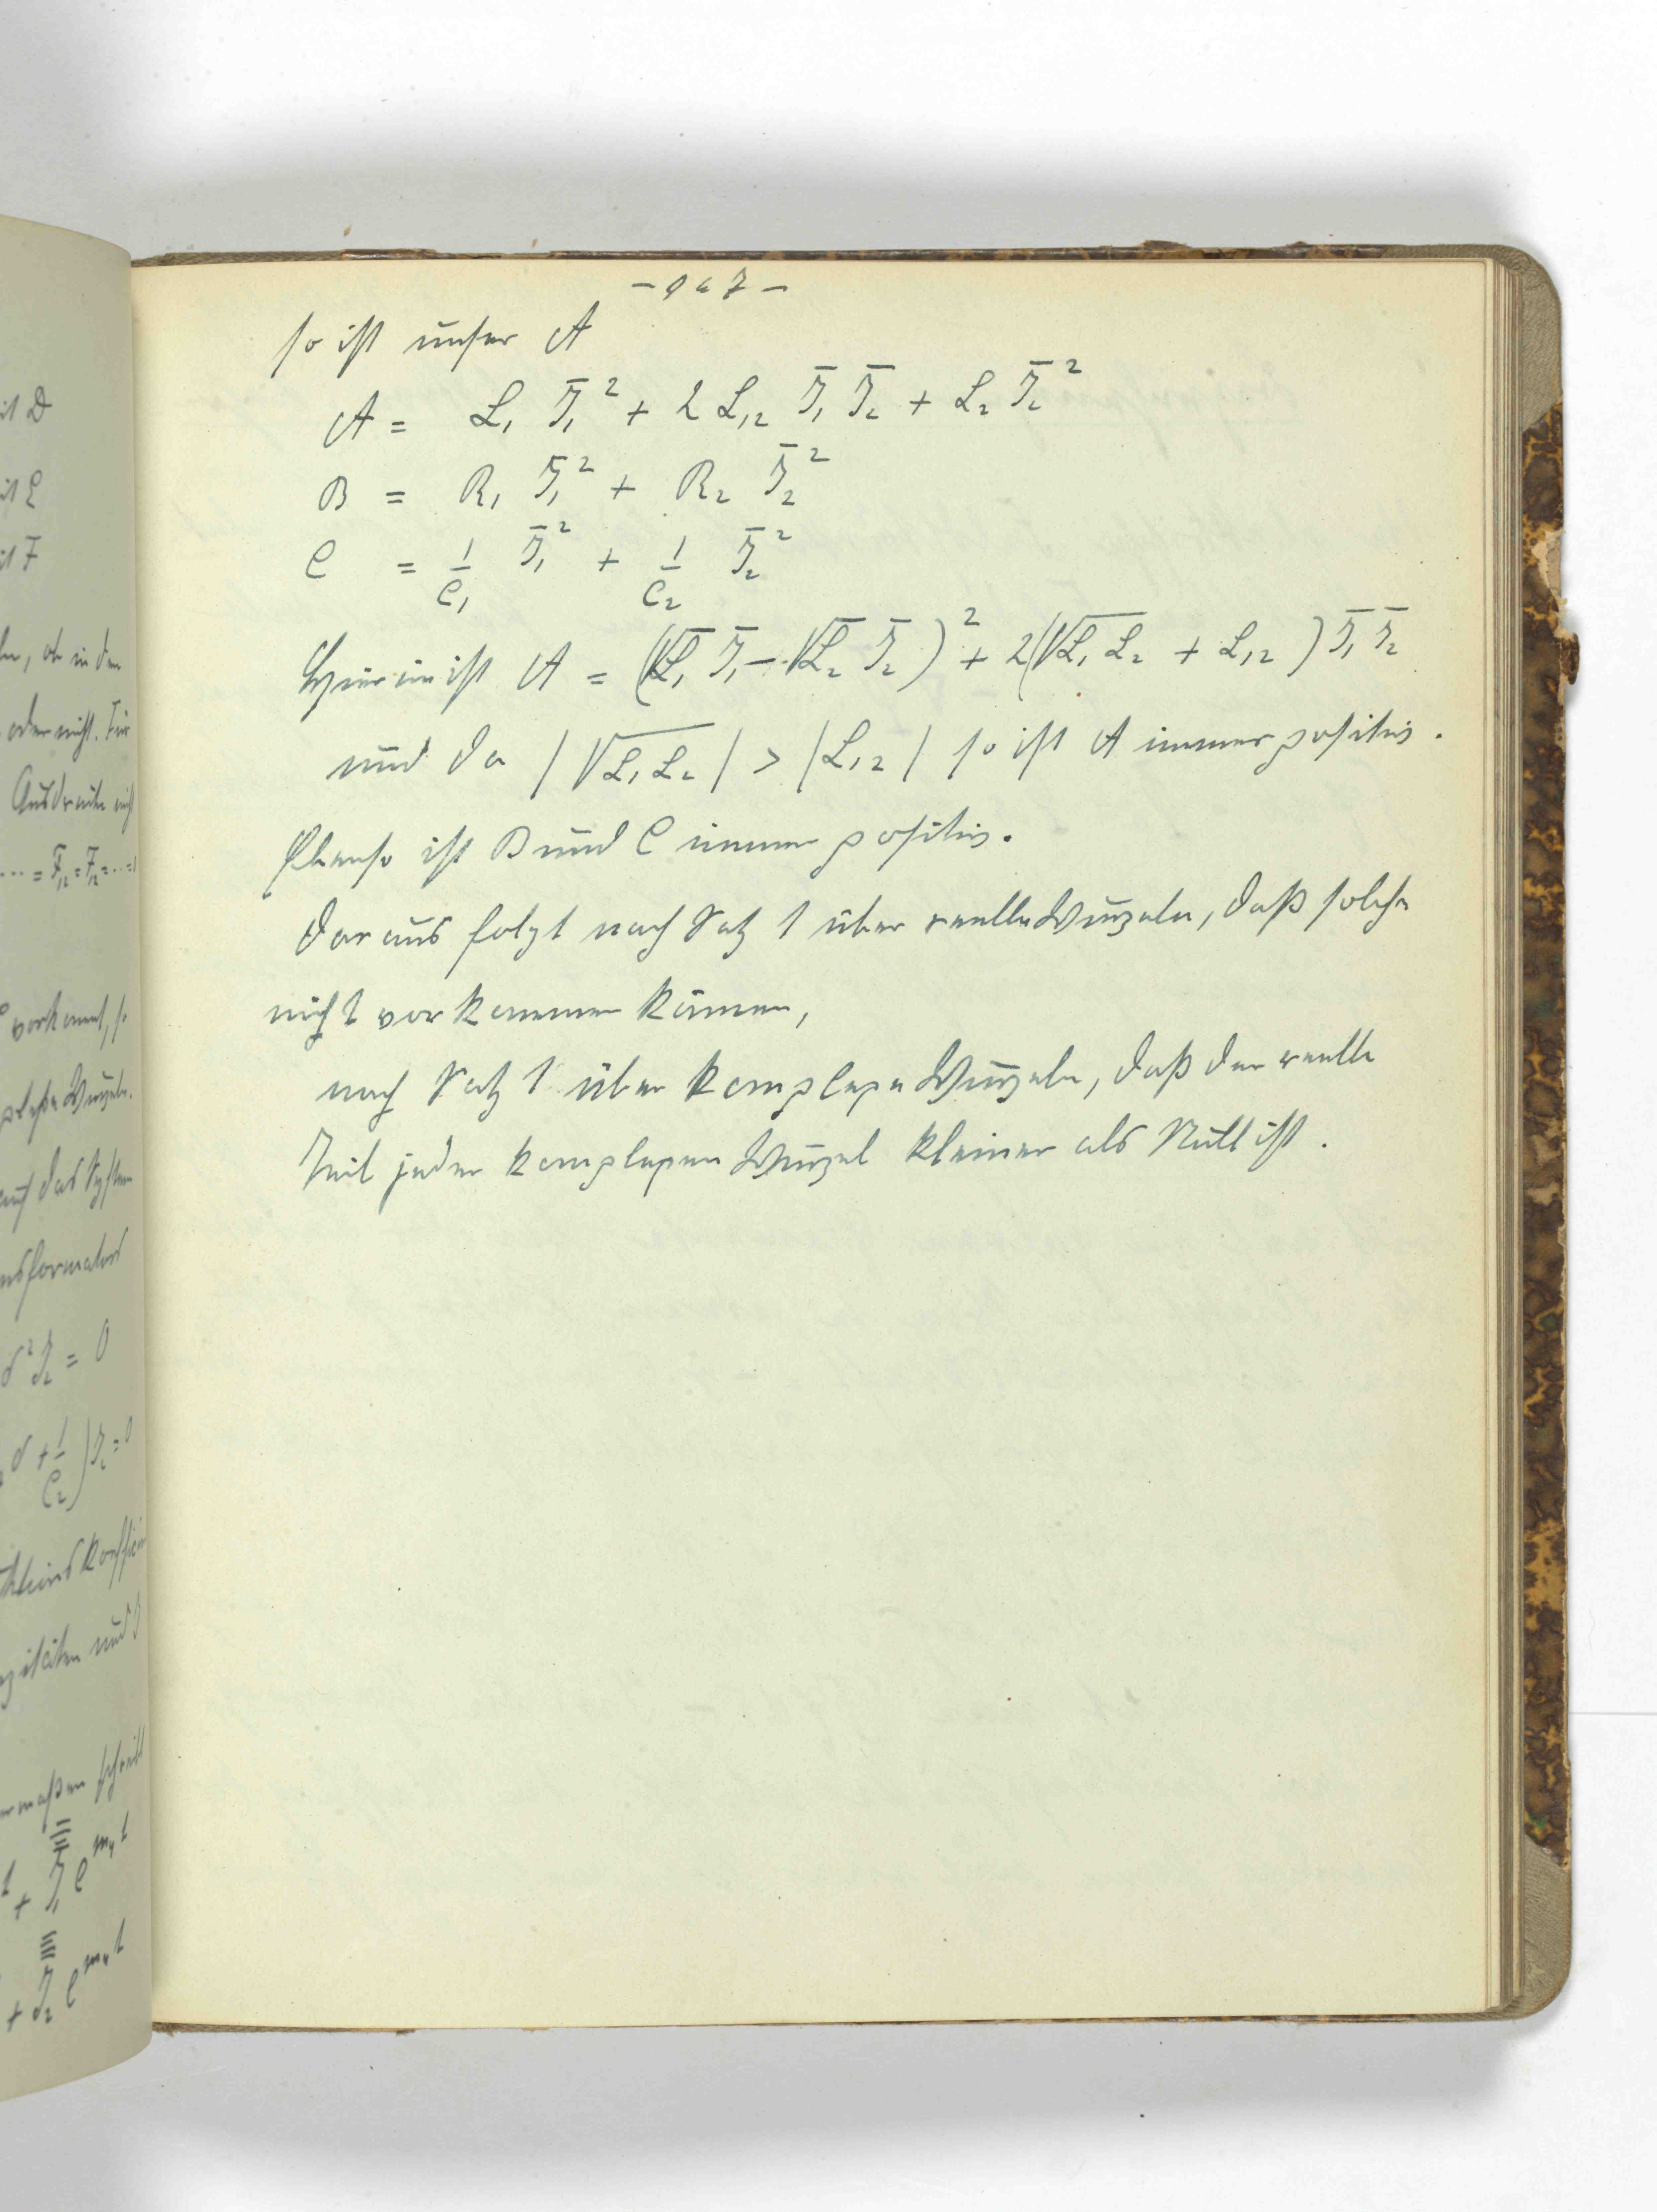 so ist unser A
A = L₁ J̄₁² + 2 L₁₂ J̄₁ J̄₂ + L₂ J̄₂²
B = R₁ J̄₁² + R₂ J̄₂²
C = 1/C₁ J̄₁² + 1/C₂ J̄₂²
Hierin ist A = (√L₁ J̄₁ - √L₂ J̄₂)² + 2(√L₁L₂ + L₁₂) J̄₁ J̄₂
und da |√L₁L₂| > |L₁₂| so ist A immer positiv.
Ebenso ist B und C immer positiv.
Daraus folgt nach Satz 1 über reelle Wurzeln, daß solche
nicht vorkommen können,
nach Satz 1 über komplexe Wurzeln, daß der reelle
Teil jeder komplexen Wurzel kleiner als Null ist.
it D
it E
it F
ob in den
oder nicht. Für
Ausdrücke
... = F₁₂ = F₁₂ = ...
vorkommt, so
Wurzeln.
auf das System
δ² J₂ = 0
δ + 1/C₂) J₂ = 0
und
schreibt
+ J₁ e^m₄t
+ J₂ e^m₄t